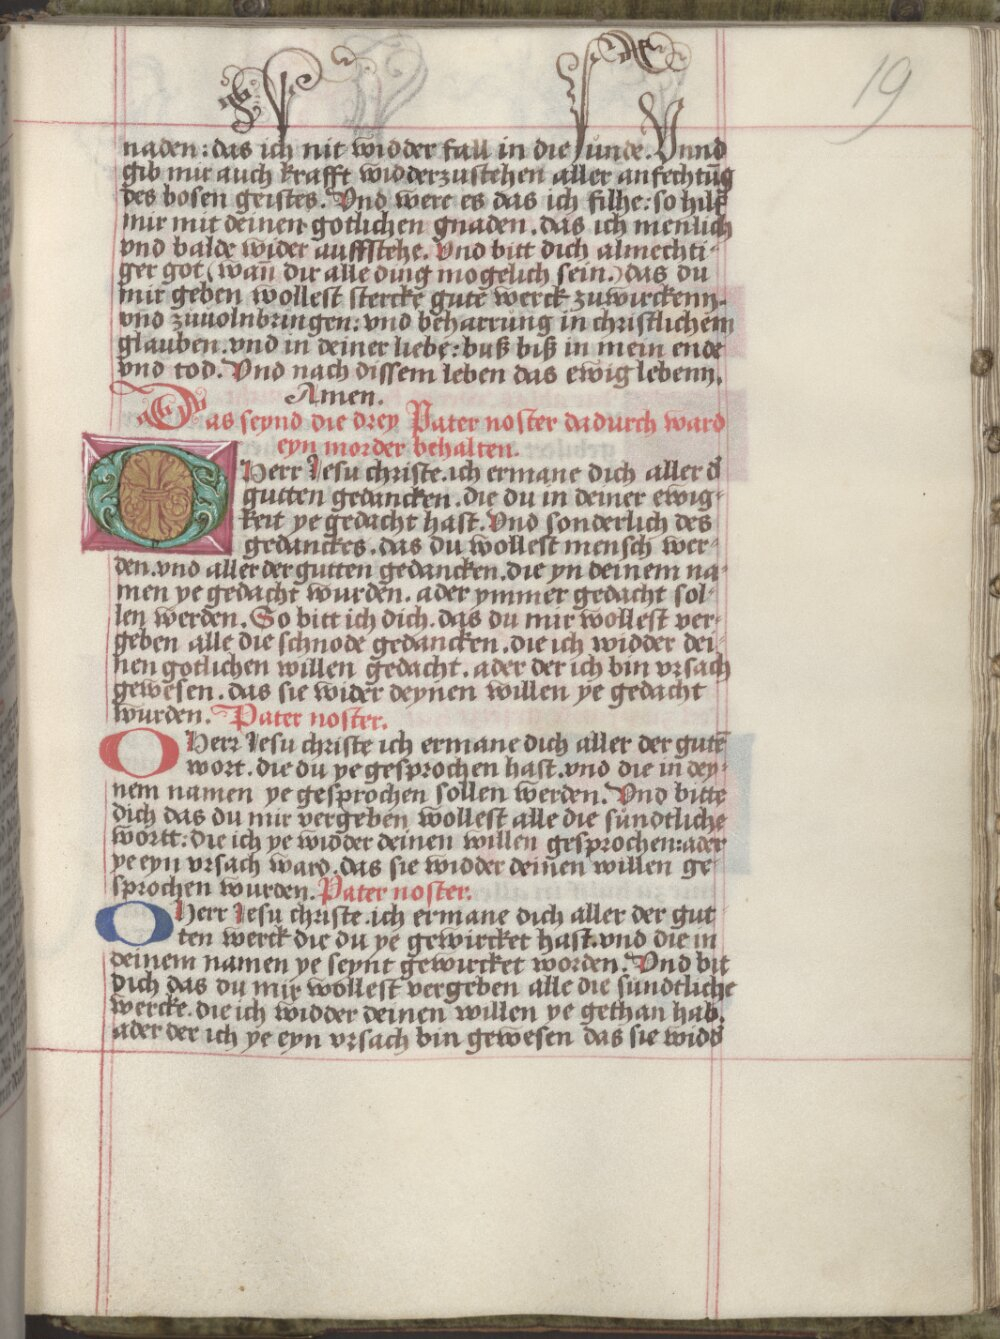 19
naden: das ich nit widder fall in die sunde. Vnnd
gib mir auch krafft widderzustehen aller anfechtūg
des bosen geistes. Vnd were es das ich filhe: so hilf
mir mit deinen gotlichen gnaden. das ich menlich
vnd balde wider auffstehe. Vnd bitt dich almechti-
ger got (wan dir alle ding mogelich sein.) das du
mir geben wollest stercke gute werck zuwirckenn.
vnd zuuolnbringen: vnd beharrung in christlichem
glauben. vnd in deiner liebe: buß biß in mein ende
vnd tod. Vnd nach dissem leben das ewig lebenn.
Amen.
Das seynd die drey Pater noster dadurch ward
eyn morder behalten.
O Herr Jesu christe. ich ermane dich aller d̄
gutten gedancken. die du in deiner ewig-
keit ye gedacht hast. Vnd sonderlich des
gedanckes. das du wollest mensch wer-
den. vnd aller der gutten gedancken. die yn deinem na-
men ye gedacht wurden. ader ymmer gedacht sol-
len werden. So bitt ich dich. das du mir wollest ver-
geben alle die schnode gedancken. die ich widder dei-
nen gotlichen willen gedacht. ader der ich bin vrsach
gewesen. das sie wider deynen willen ye gedacht
wurden. Pater noster.
O Herr Jesu christe ich ermane dich aller der gutē
wort. die du ye gesprochen hast. vnd die in dey-
nem namen ye gesprochen sollen werden. Vnd bitte
dich das du mir vergeben wollest alle die sundtliche
wortt: die ich ye widder deinen willen gesprochen: ader
ye eyn vrsach ward. das sie widder deinen willen ge-
sprochen wurden. Pater noster.
O Herr Jesu christe. ich ermane dich aller der gut-
ten werck die du ye gewircket hast. vnd die in
deinem namen ye seynt gewircket worden. Vnd bit
dich das du mir wollest vergeben alle die sundtliche
wercke. die ich widder deinen willen ye gethan hab.
ader der ich ye eyn vrsach bin gewesen das sie widd̄